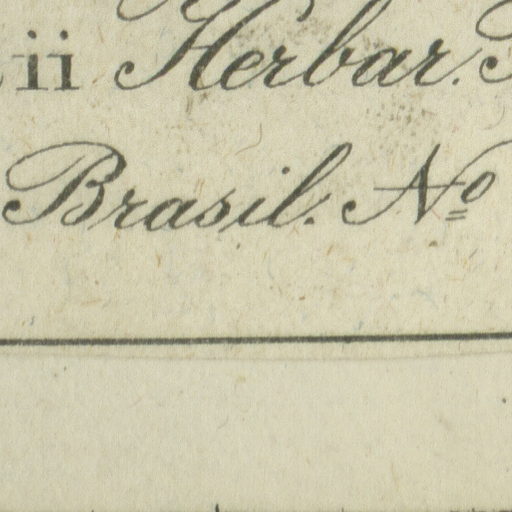 ii Herbar.
Brasil. Nº